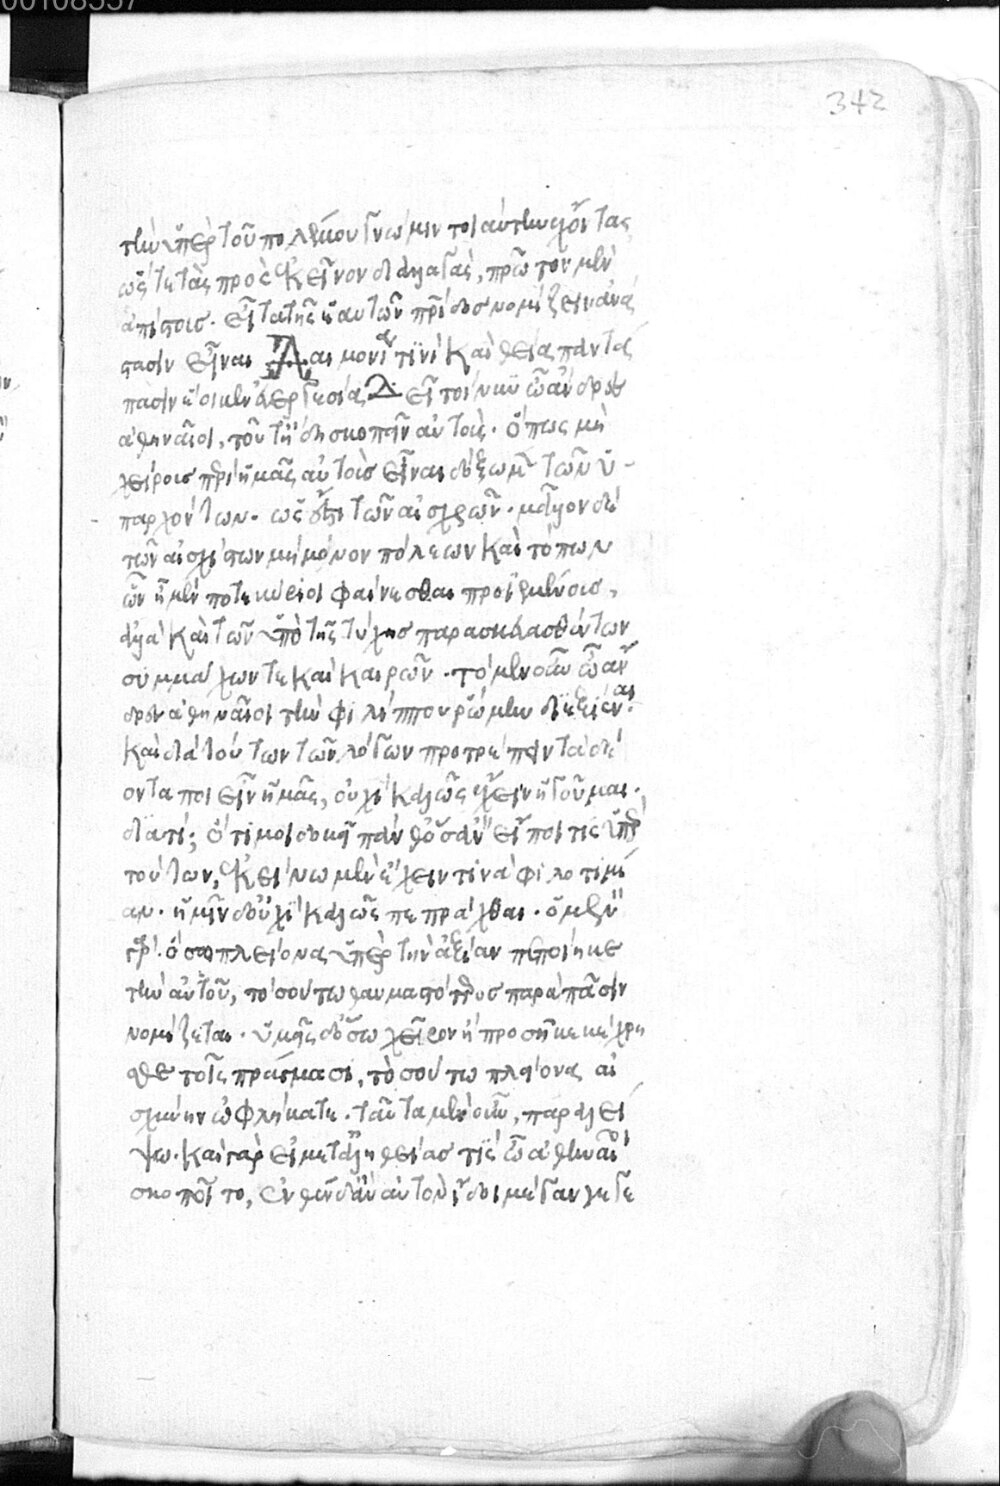 342
τὴν ὑπὲρ τοῦ πολέμου γνώμην τοιαύτην ἔχοντας
ὥστε τὰς πρὸς ἐκεῖνον διαλλαγὰς, πρῶτον μὲν
ἀπίστοις. εἶτα τῆς ἑαυτῶν πατρίδος νομίζειν ἀνά
στασιν εἶναι Δαιμονίαν τινὶ καὶ θεία παντά
πασιν ἔοικεν ἐυεργεσία Δεῖ τοίνυν ὦ ἄνδρες
ἀθηναῖοι, τοῦτ' ἤδη σκοπεῖν αὐτοὺς. ὅπως μὴ
χείροις περὶ ἡμᾶς αὐτοὺς εἶναι δόξωμεν τῶν ὑ-
παρχόντων. ὡς ἔστι τῶν αἰσχρῶν. μᾶλλον δὲ
τῶν αἰσχίστων μὴ μόνον πόλεων καὶ τόπων
ὧν ἦμέν ποτε κύριοι φαίνεσθαι προϊεμένους,
ἀλλὰ καὶ τῶν ὑπὸ τῆς τύχης παρασκευασθέντων
συμμάχων τε καὶ καιρῶν. τὸ μὲν οὖν ὦ ἄν
δρες ἀθηναῖοι τὴν φιλίππου ῥώμην διεξιέναι.
καὶ διὰ τούτων τῶν λόγων προτρέπειν τὰ δέ
οντα ποιεῖν ἡμᾶς, οὐχὶ καλῶς ἔχειν ἡγοῦμαι.
διατί; ὅτι μοι δοκεῖ πάνθ' ὅσ' ἂν εἴποι τις ὑπὲρ
τούτων, ἐκείνω μὲν ἔχειν τινὰ φιλοτιμί
αν. ἡμῖν δ' οὐχὶ καλῶς πεπράχθαι. ὁ μὲν
γὰρ. ὅσω πλείονας ὑπὲρ τὴν ἀξίαν πεποίηκε
τὴν αὐτοῦ, τοσούτω θαυμαστότερος παρὰ πᾶσιν
νομίζεται. ὑμεῖς δ' ὅσω χεῖρον ἢ προσῆκε κέχρη
σθε τοῖς πράγμασι, τοσούτω πλείονας αἰ
σχύνην ὠφλήκατε. ταῦτα μὲν οὖν, παραλεί
ψω. καὶ γὰρ εἰ μετ' ἀληθείας τις ὦ ἀθηναῖοι
σκοποῖτο, ἐνθένδ' ἂν αὐτὸν ἴδοι μέγαν γεγε